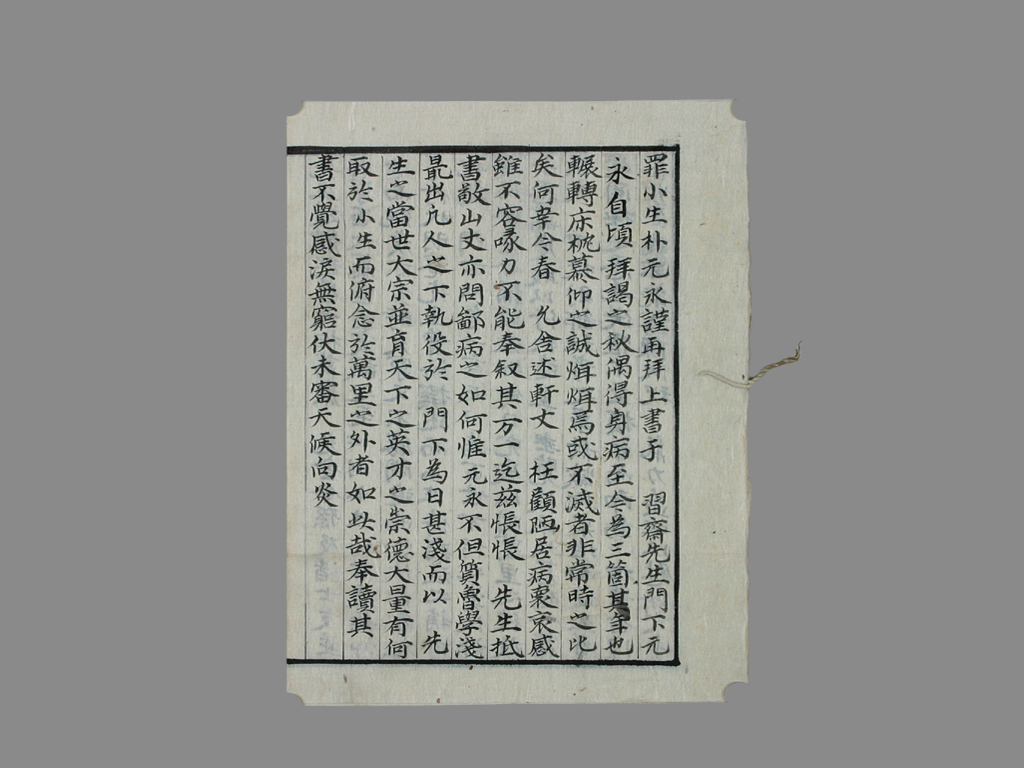 罪小生朴元永謹再拜上書于 習齋先生門下元
永自頃 拜謁之秋偶得身病至今為三箇其年也
輾轉床枕慕仰之誠烱烱焉或不滅者非常時之比
矣何幸今春 允舍述軒丈 枉顧陋居病裏哀感
雖不容喙力不能奉叙其万一迄玆悵悵 先生抵
書敬山丈亦問鄙病之如何惟元永不但質魯學淺
最出凡人之下執役於 門下為日甚淺而以 先
生之當世大宗並育天下之英才之崇德大量有何
取於小生而俯念於萬里之外者如此哉奉讀其
書不覺感淚無窮伏未審天候向炎